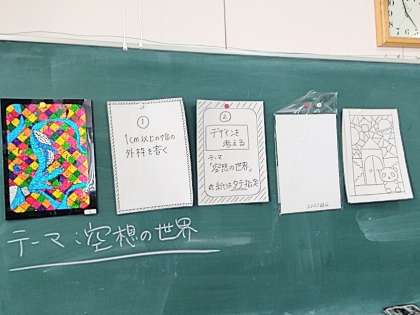 ①
1cm以上の幅の
外枠を書く
②
デザインを
考える
テーマ
「空想の世界」
テーマ：空想の世界